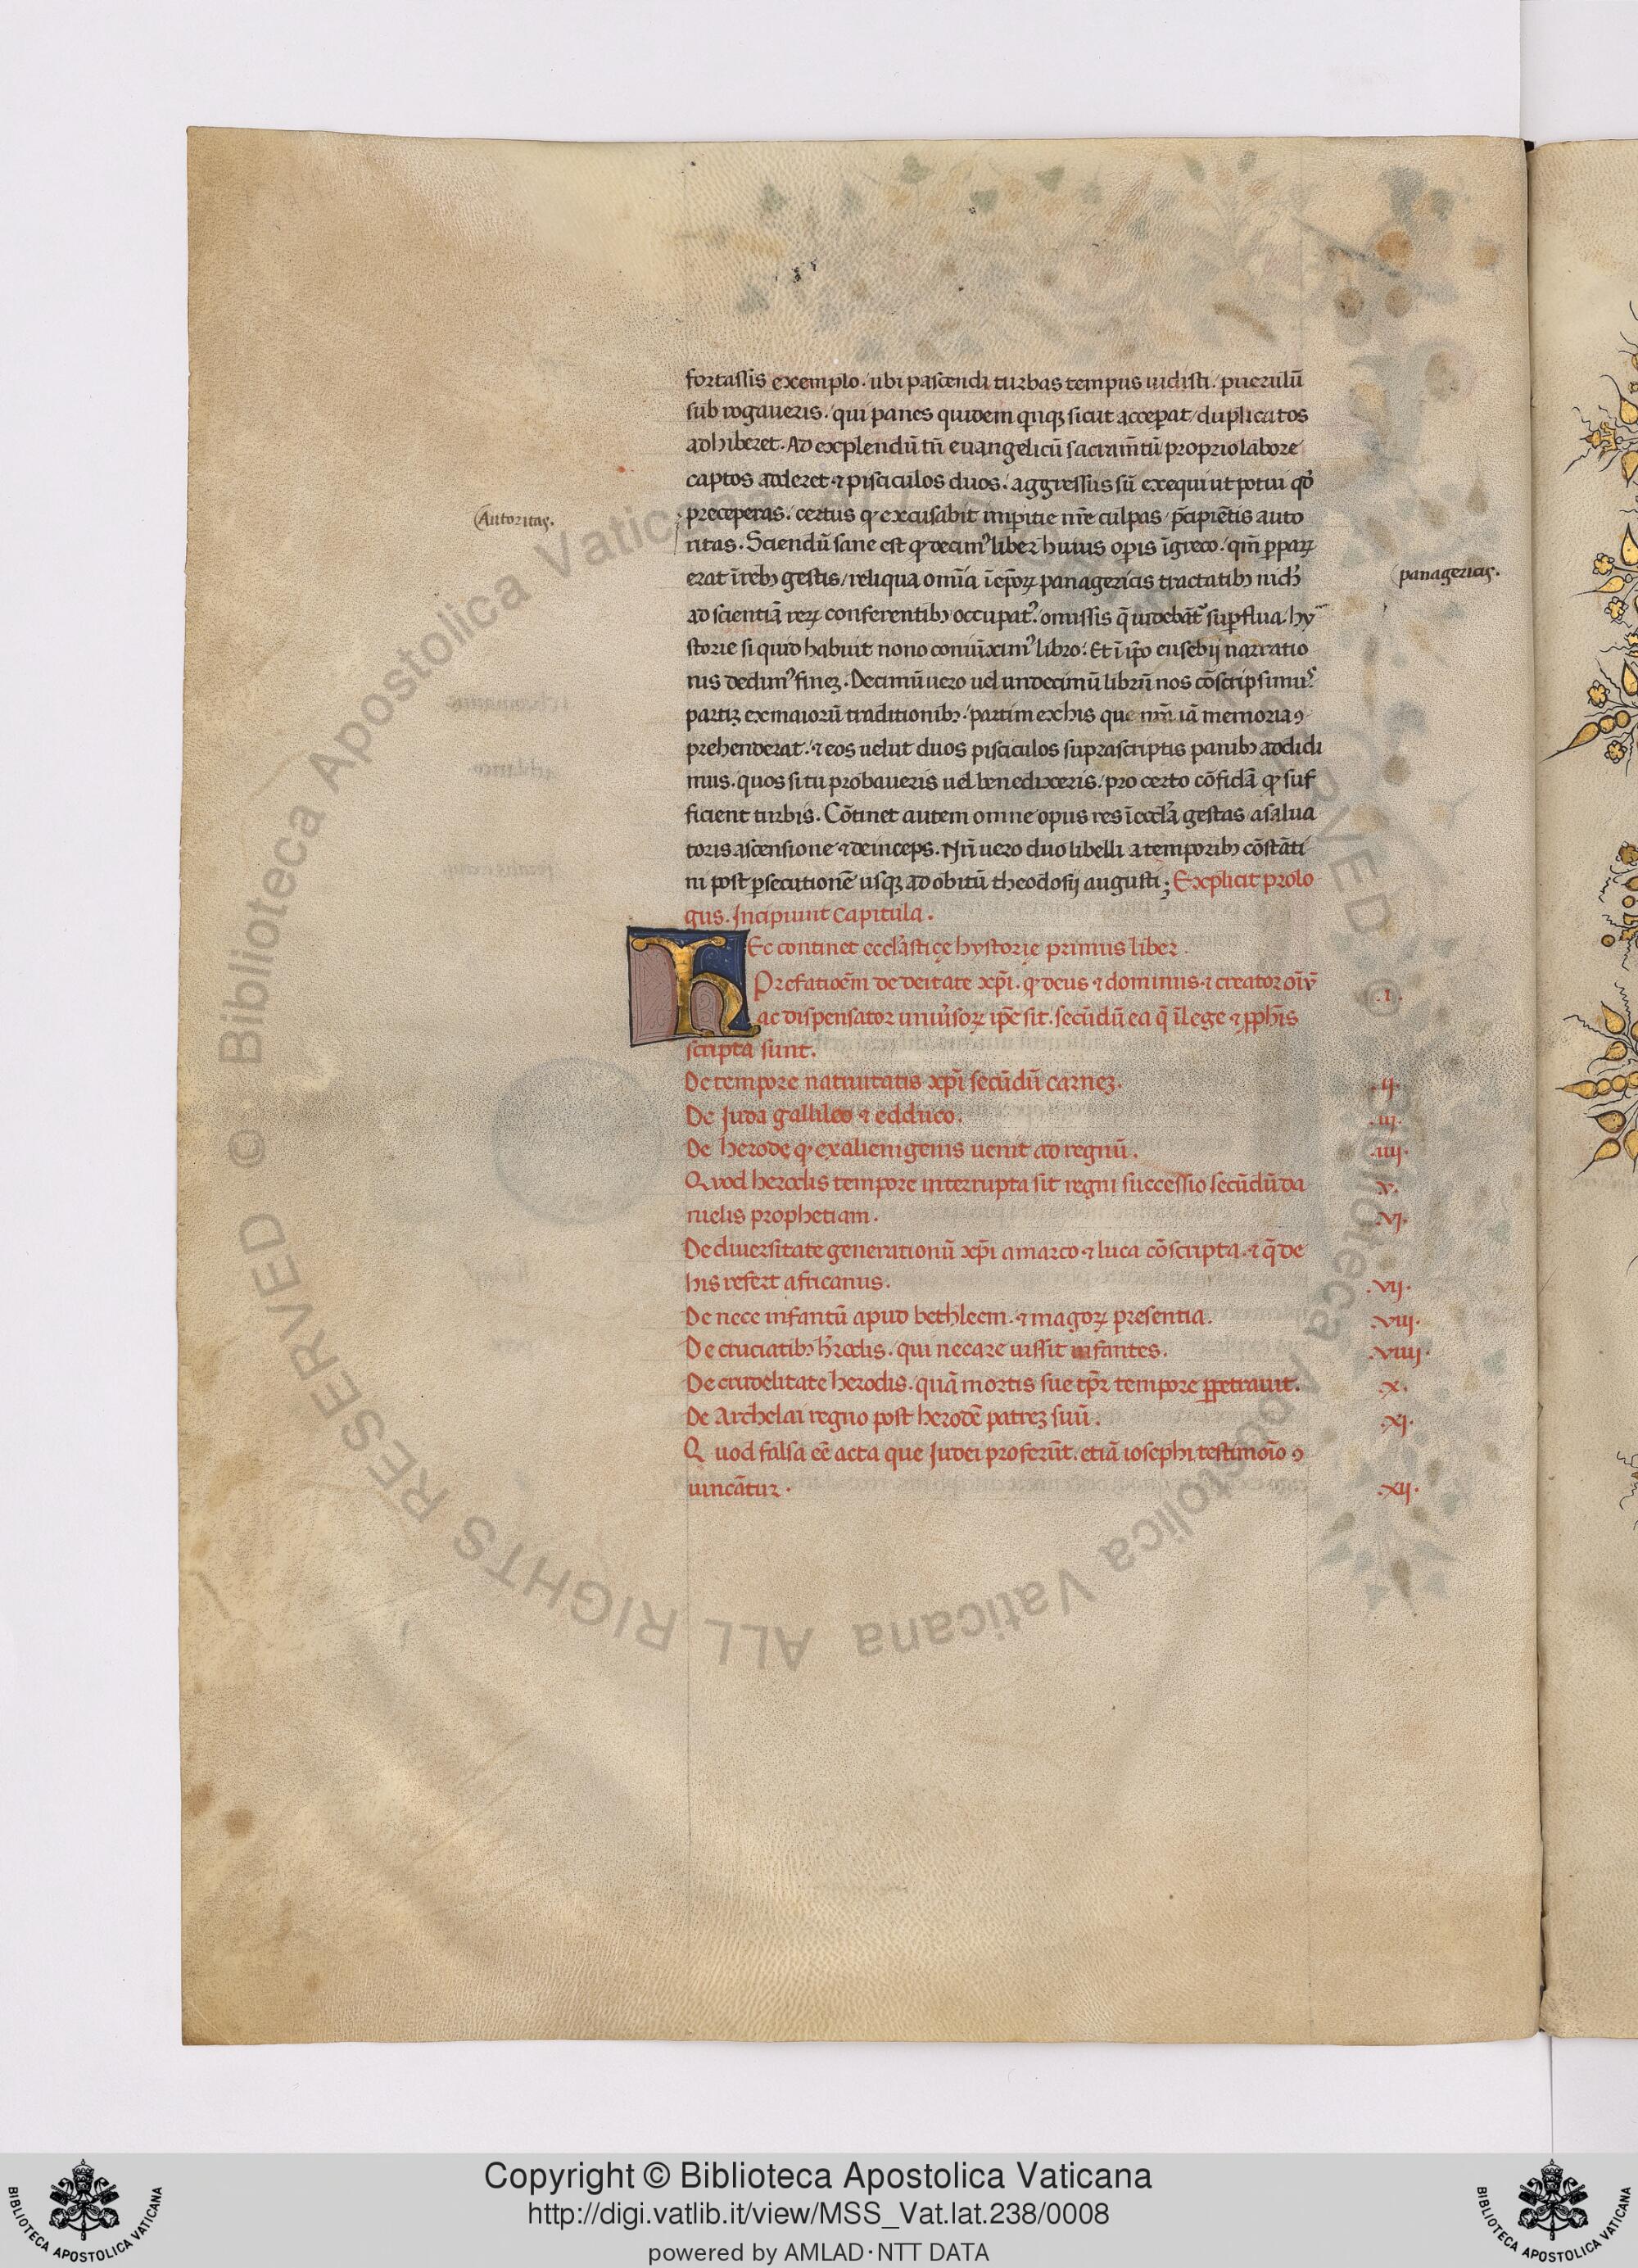 fortassis exemplo. ubi pascendi turbas tempus uidisti. puerulū
sub rogaueris. qui panes quidem qnqꝫ sicut acceꝑat / duplicatos
adhiberet. Ad explendū tn̄ euangelicū sacram̄tū proprio labore
captos adderet. ⁊ pisciculos duos. aggressus sū exequi ut potui qđ
preceperas. certus ꝙ excusabit imꝑitie nr̄e culpas / p̄cipiētis auto
ritas. Sciendū sane est ꝙ decimꝰ liber huius oꝑis ī greco. qm̄ ꝑparꝝ
erat ī rebꝫ gestis / reliqua omīa ī ep̄orꝝ panagericis tractatibꝫ nich̄
ad scientiā rerꝝ conferentibꝫ occupatꝰ. omissis q̄ uidebāt᷑ suꝑflua. hy
storie si quid habuit nono coniūximꝰ libro. Et ī ip̄o eusebij narratio
nis dedimꝰ fineꝫ. Decimū uero uel undecimū librū nos cōscripsimꝰ.
partiꝫ ex maiorū traditionibꝫ. partim ex his que nr̄a iā memoria ꝯ
prehenderat. ⁊ eos uelut duos pisciculos suprascriptis panibꝫ addidi
mus. quos si tu probaueris uel benedixeris. pro certo cōfidā ꝙ suf
ficient turbis. Cōtinet autem omne opus res ī eccl̄a gestas a salua
toris ascensione ⁊ deinceps. Nr̄i uero duo libelli a temporibꝫ cōstāti
ni post ꝑsecutionē usqꝫ ad obitū theodosij augusti; Explicit prolo
gus. Incipiunt Capitula.
hEc continet eccl̄astice hystorie primus liber.
Prefatioēm de deitate xp̄i. ꝙ deus ⁊ dominus. ⁊ creator oīū .I.
ac dispensator uniu̓sorꝝ ip̄e sit. secūdū ea q̄ ī lege ⁊ ꝓph̄is
scripta sunt.
De tempore natiuitatis xp̄i secūdū carneꝫ. .ij.
De Juda gallileo ⁊ edduco. .iij.
De herode ꝙ ex alienigenis uenit ad regnū. .iiij.
Quod herodis tempore interrupta sit regni successio secūdū da .v.
nielis prophetiam. .vj.
De diuersitate generationū xp̄i a marco ⁊ luca cōscripta. ⁊ q̄ de
his refert africanus. .vij.
De nece infantū apud bethleem. ⁊ magorꝝ presentia. .viij.
De cruciatibꝫ h̓rodis. qui necare iussit infantes. .viiij.
De crudelitate herodis. quā mortis sue tp̄r tempore ꝑpetrauit. .x.
De Archelai regno post herodē patreꝫ suū. .xj.
Quod falsa eē acta que Judei proferūt. etiā iosephi testimoīo ꝯ
uincātur. .xij.
Autoritas.
panagericis.
Copyright © Biblioteca Apostolica Vaticana
http://digi.vatlib.it/view/MSS_Vat.lat.238/0008
powered by AMLAD·NTT DATA
BIBLIOTECA APOSTOLICA VATICANA
BIBLIOTECA APOSTOLICA VATICANA